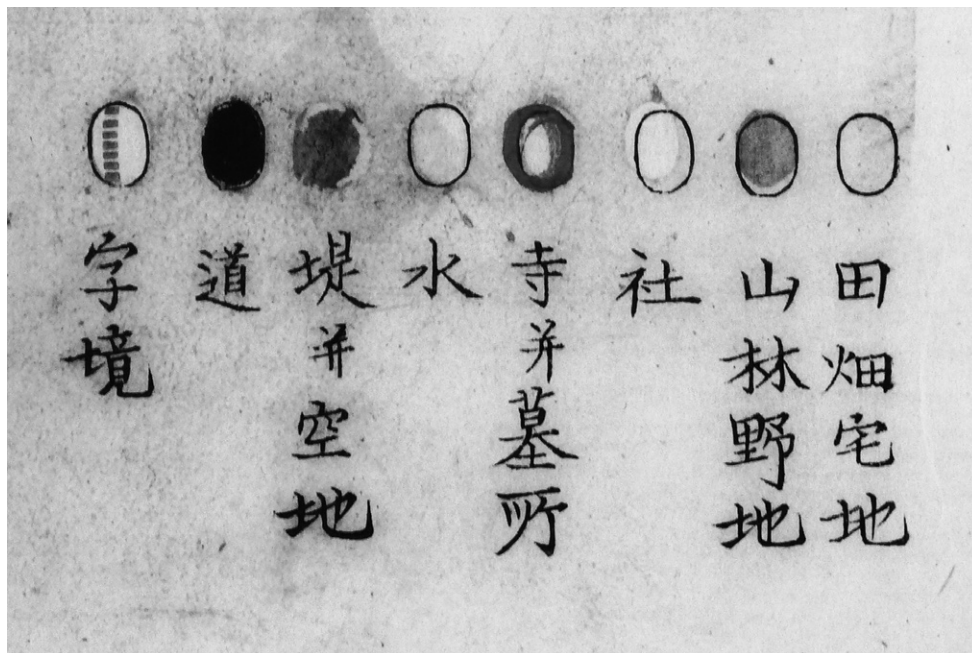 田畑宅地
山林野地
社
寺并墓所
水
堤并空地
道
字境